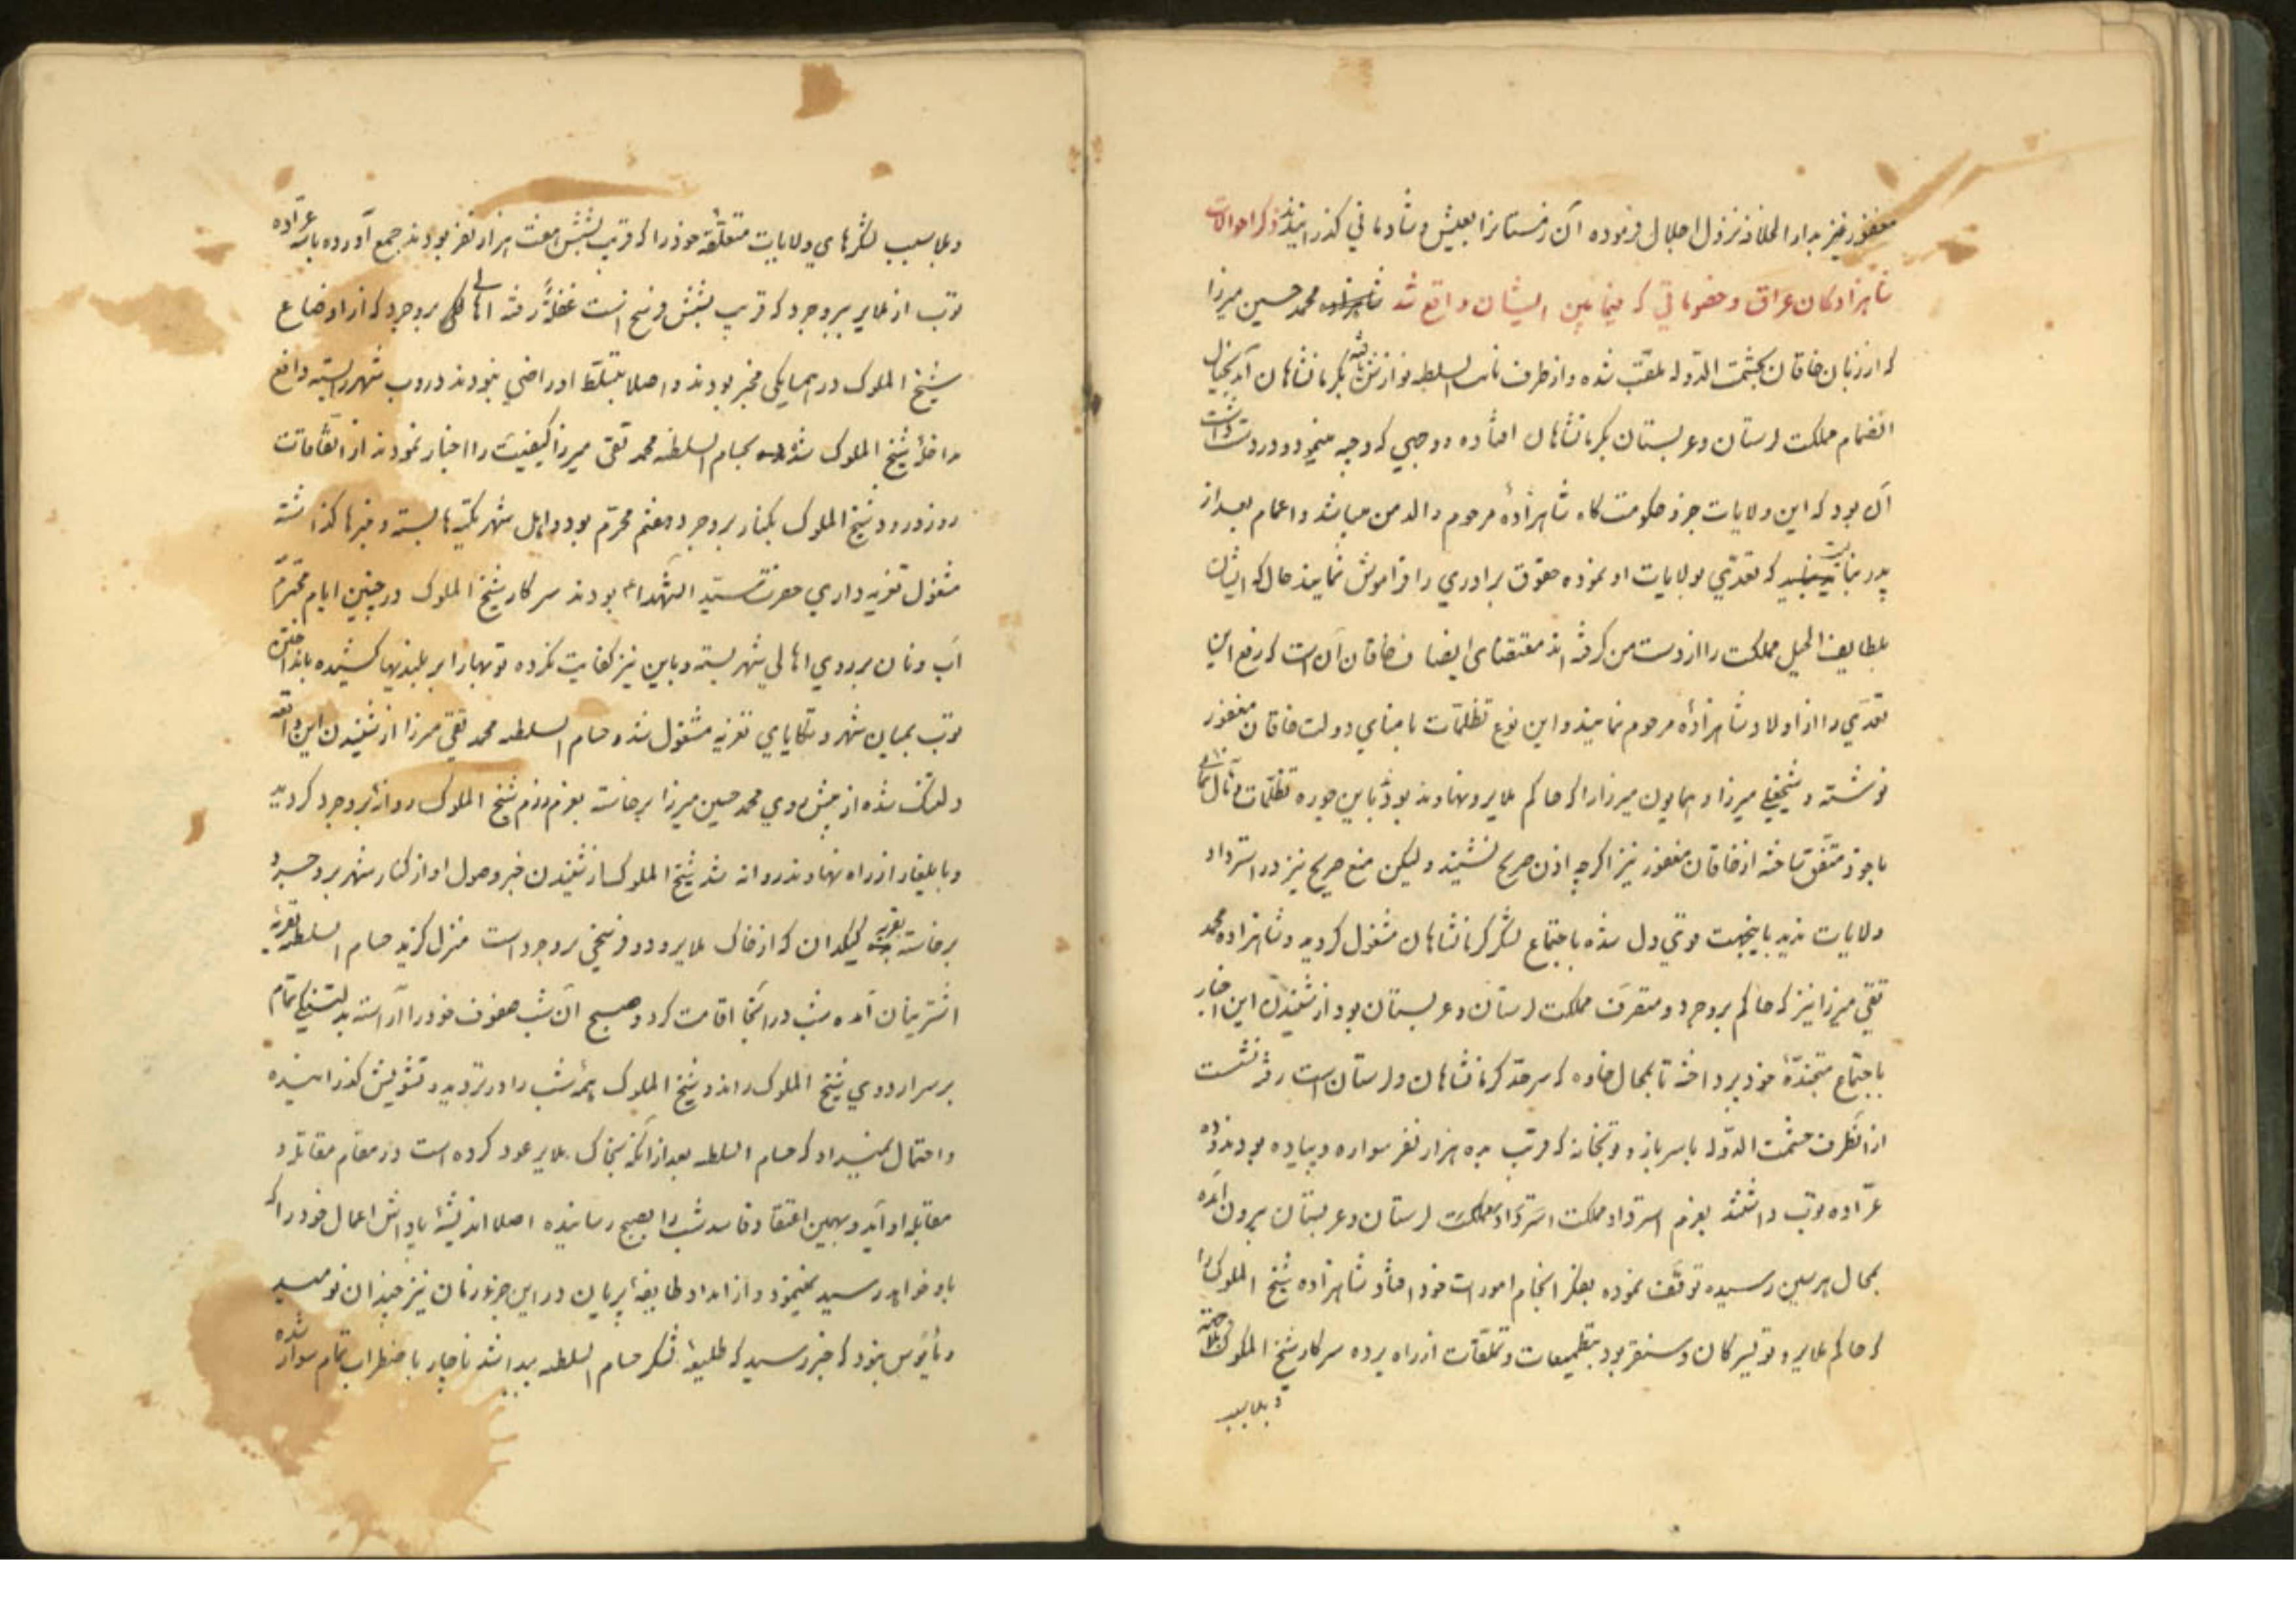 مغفور نیز بدار الخلافه نزول اجلال فرموده آن زمستانرا بعیش و شادمانی کذرانیدند ذکر احوالات
شاهزادکان عراق و خصوماتی که فیمابین ایشان واقع شد محمد حسین میرزا
که از زبان خاقان بحشمت الدوله ملقب شده و از طرف نایب السلطنه نوازش یافته بکرمانشاهان آمد بخیال
انضمام مملکت لرستان و عربستان بکرمانشاهان افتاده و وجهی که وجیه مینمود و در دست داشت
آن بود که این ولایات جزء حکومت کاه شاهزادۀ مرحوم والد من میباشد و اعمام بعد از
پدر نبایست که تعدی بولایات او نموده حقوق برادری را فراموش نمایند حال که ایشان
بلطایف الحیل مملکت را از دست من کرفته اند مقتضای انصاف خاقان آن است که رفع این
تعدی را از اولاد شاهزادۀ مرحوم نمایند و این نوع تظلمات بامنای دولت خاقان مغفور
نوشته و شیخعلی میرزا و همایون میرزا را که حاکم ملایر و نهاوند بود باین جوره تظلمات
باخود متفق ساخته از خاقان مغفور نیز اکرچه اذن صریح نشنید ولیکن منع صریح نیز در استرداد
ولایات ندید باینجهت قوی دل شده باجتماع لشکر کرمانشاهان مشغول کردید و شاهزاده محمد
تقی میرزا نیز که حاکم بروجرد و متصرف مملکت لرستان و عربستان بود از شنیدن این اخبار
باجتماع متجندۀ خود پرداخته تا بمحال خاوه که سرحد کرمانشاهان و لرستان است رفته نشست
از انطرف حشمت الدوله با سرباز و توپخانه که قریب بده هزار نفر سواره و پیاده بودند و ده
عراده توپ داشتند بعزم استرداد مملکت لرستان و عربستان بیرون آمده
بمحال هرسین رسیده توقف نموده بفکر انجام امورات خود افتاد شاهزاده شیخ الملوک را
که حاکم ملایر و تویسرکان و سنقر بود بتطمیعات و تملقات از راه برده سرکار شیخ الملوک
و بلاسبب
و بلاسبب لشکرهای ولایات متعلقۀ خود را که قریب بشش هفت هزار نفر بودند جمع آورده باسه عراده
توپ از ملایر ببروجرد که قریب بشش فرسخ است غفلةً رفته اهالی بروجرد که از اوضاع
شیخ الملوک در همسایکی مخبر بودند و اصلا بتسلط او راضی نبودند دروب شهر را بسته دافع
داخلۀ شیخ الملوک شده بحسام السلطنه محمد تقی میرزا کیفیت را اخبار نمودند از اتفاقات
روز ورود شیخ الملوک بکنار بروجرد هفتم محرم بود و اهل شهر تکیه ها بسته و منبرها کذاشته
مشغول تعزیه داری حضرت سید الشهداء بودند سرکار شیخ الملوک در چنین ایام محترم
آب و نان بر روی اهالی شهر بسته و باین نیز کفایت نکرده توپها را بر بلندیها کشیده بانداختن
توپ بمیان شهر و تکایای تعزیه مشغول شد و حسام السلطنه محمد تقی میرزا از شنیدن این واقعه
دلتنک شده از پیش روی محمد حسین میرزا برخاسته بعزم رزم شیخ الملوک روانۀ بروجرد کردید
و بایلغار از راه نهاوند روانه شد شیخ الملوک از شنیدن خبر وصول او از کنار شهر بروجرد
برخاسته بقریه کیکدان که از خاک ملایر و دو فرسخی بروجرد است منزل کزید حسام السلطنه بقریه
اشترینان آمده شب در انجا اقامت کرد و صبح آن شب صفوف خود را آراسته تمام
بر سر اردوی شیخ الملوک راند و شیخ الملوک همۀ شب را در تردید و تشویش کذرانیده
و احتمال نمیداد که حسام السلطنه بعد از آنکه بخاک ملایر عود کرده است در مقام مقاتله و
مقابله او آید و بهمین اعتقاد فاسد شب را بصبح رسانیده اصلا اندیشۀ پاداش اعمال خود را که
باو خواهد رسید نمینمود و از امداد طایفۀ پریان در این جزو زمان نیز چندان نومید
و مأیوس نبود که خبر رسید که طلیعۀ لشکر حسام السلطنه پیدا شد ناچار باضطراب تمام سوار شده